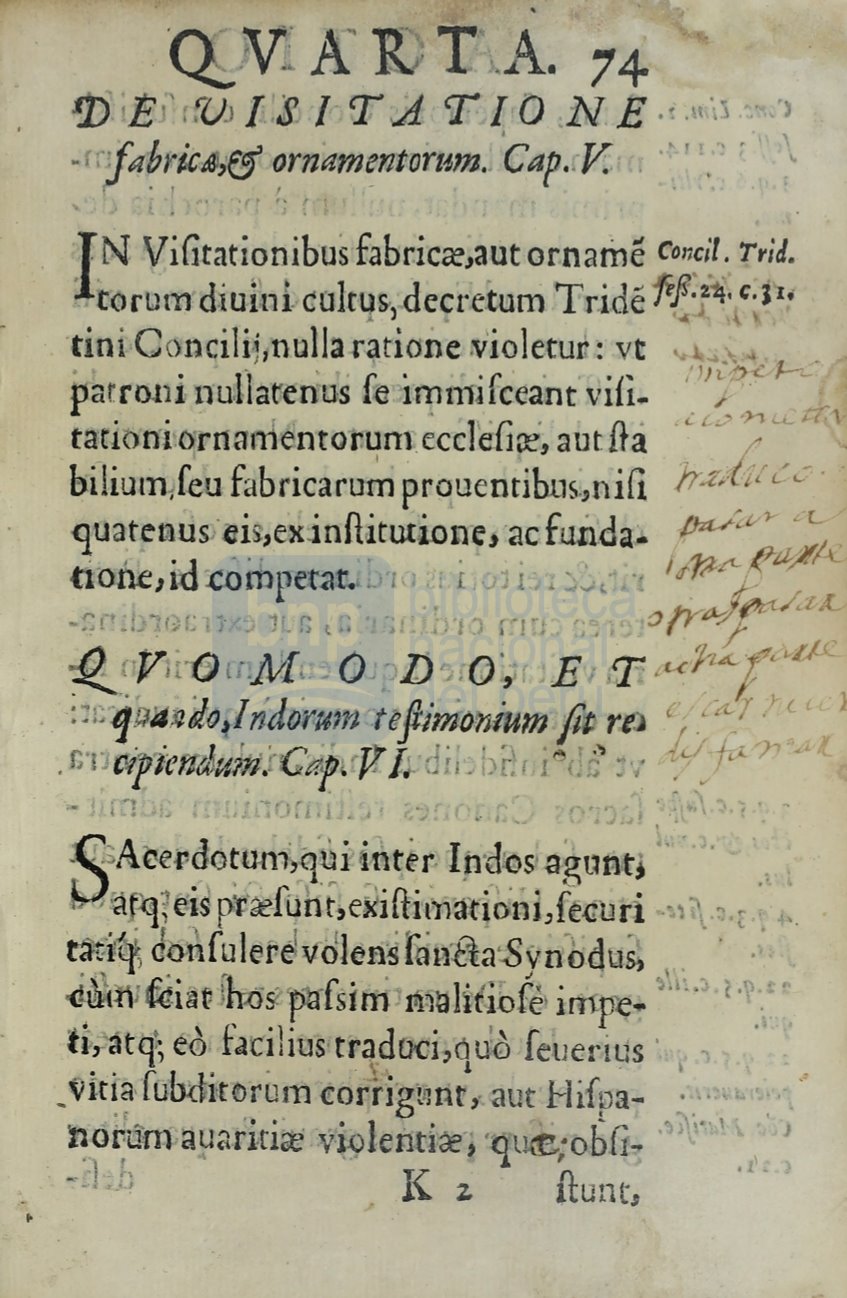 QVARTA. 74
DE VISITATIONE
fabricæ, & ornamentorum. Cap. V.
IN Viſitationibus fabricæ, aut ornamẽ
torum diuini cultus, decretum Tridẽ
tini Concilij, nulla ratione violetur: vt
patroni nullatenus ſe immiſceant viſi-
tationi ornamentorum eccleſiæ, aut ſta
bilium, ſeu fabricarum prouentibus, niſi
quatenus eis, ex inſtitutione, ac funda-
tione, id competat.
Concil. Trid.
ſeſſ. 24. c. 31.
impeto
acometer
traduco
pasar a
otra parte
otra parte
escarnecer
disfamar
QVOMODO, ET
quando, Indorum teſtimonium ſit re-
cipiendum. Cap. VI.
SAcerdotum, qui inter Indos agunt,
atq; eis præſunt, exiſtimationi, ſecuri
tatiq́; conſulere volens ſancta Synodus,
cùm ſciat hos paſsim malitioſè impe-
ti, atq; eò facilius traduci, quò ſeuerius
vitia ſubditorum corrigunt, aut Hiſpa-
norum auaritiæ violentiæ, quæ; obſi-
K 2 ſtunt,
biblioteca
nacional
del perú